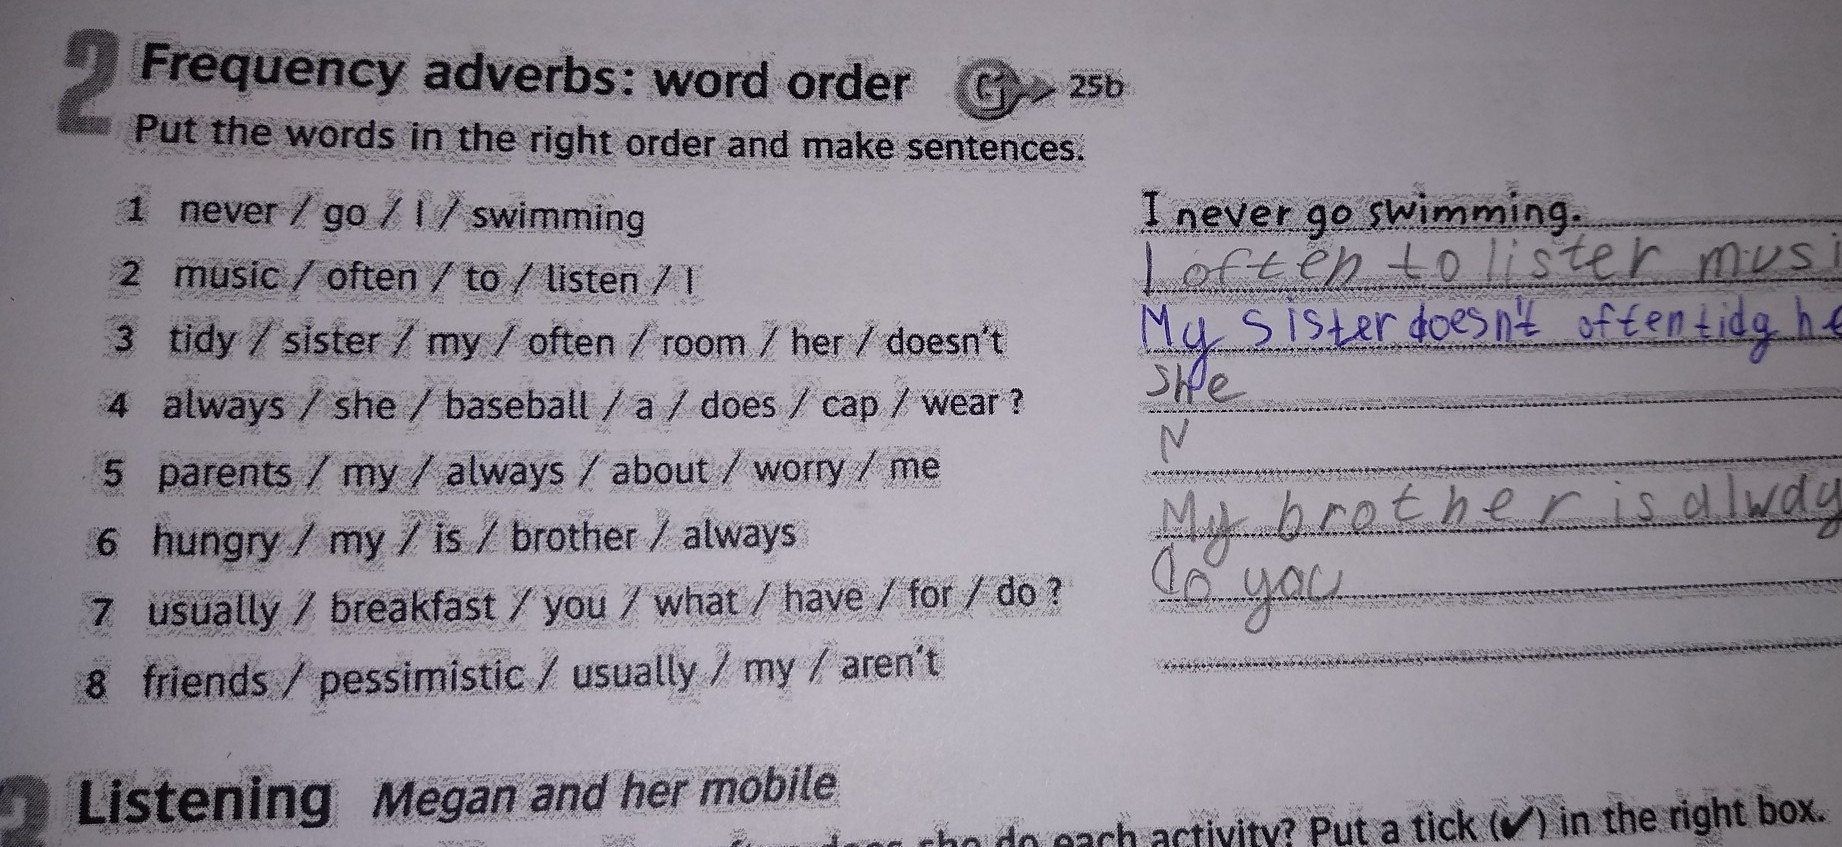 2 Frequency adverbs: word order G 25b
Put the words in the right order and make sentences.
1 never / go / I / swimming I never go swimming.
2 music / often / to / listen / I I often to lister musi
3 tidy / sister / my / often / room / her / doesn't My sister doesn't often tidg he
4 always / she / baseball / a / does / cap / wear ? she
5 parents / my / always / about / worry / me N
6 hungry / my / is / brother / always My brother is alway
7 usually / breakfast / you / what / have / for / do ? do you
8 friends / pessimistic / usually / my / aren't
Listening Megan and her mobile
she do each activity? Put a tick (✔) in the right box.